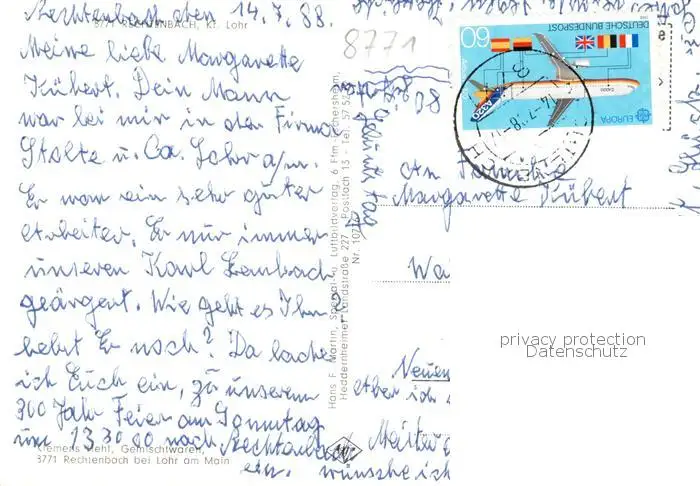 Rechtenbach den 14.7.88.
8771 RECHTENBACH, Kr. Lohr
Meine liebe Margarette
Kübert. Dein Mann
war bei mir in der Firma
Stolte u. Co. Lohr a/m.
Er war ein sehr guter
Arbeiter. Er nur immer
unseren Karl Lembach
geärgert. Wie geht es Ihm?
lebet Er noch? Da lade
ich Euch ein, zu unserem
300 Jahr Feier am Sonntag
um 13 30 00 nach Rechtenbach
ein.
Klemens Diehl, Gemischtwaren,
8771 Rechtenbach bei Lohr am Main
Hans F. Martin, Spezial- u. Luftbildverlag, 6 Ffm.-Eschersheim,
Heddernheimer Landstraße 227 Postfach 13 - Tel. 57 52
Nr. 107
8771
60
DEUTSCHE BUNDESPOST
EUROPA
An Familie
Margarette Kübert
Neuen
Aber ich
Meister
wünsche ich
privacy protection
Datenschutz